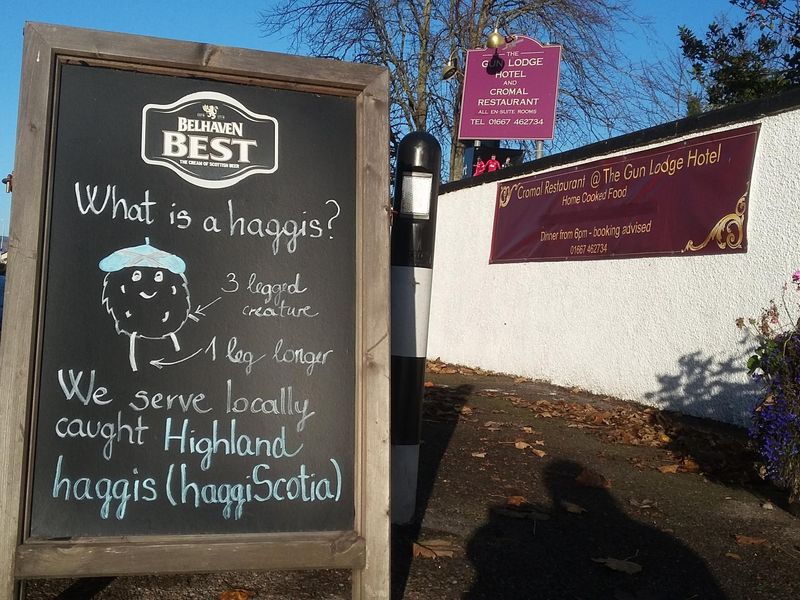 BELHAVEN
BEST
THE CREAM OF SCOTTISH BEER
What is a haggis?
3 legged
creature
1 leg longer
We serve locally
caught Highland
haggis (haggiScotia)
THE
GUN LODGE
HOTEL
AND
CROMAL
RESTAURANT
ALL EN-SUITE ROOMS
TEL 01667 462734
Cromal Restaurant @ The Gun Lodge Hotel
Home Cooked Food
Dinner from 6pm - booking advised
01667 462734